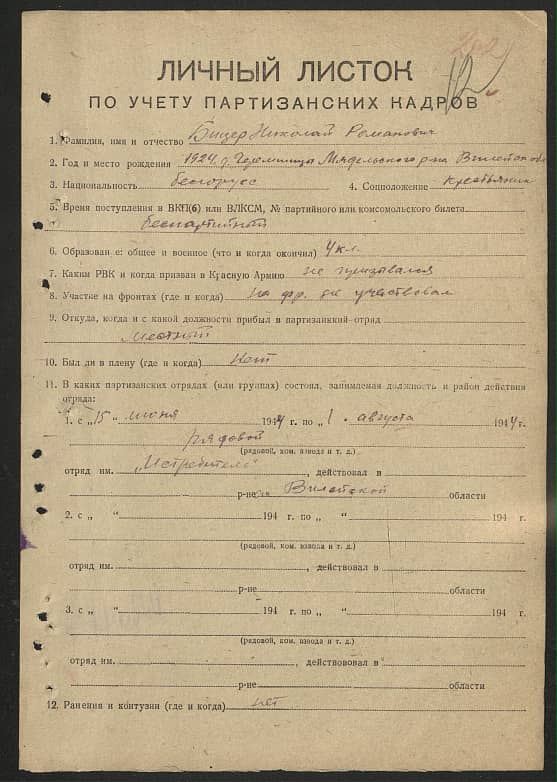 12
ЛИЧНЫЙ ЛИСТОК
ПО УЧЕТУ ПАРТИЗАНСКИХ КАДРОВ
1. Фамилия, имя и отчество Бицер Николай Романович
2. Год и место рождения 1924 г. Мядельского р-на Вилейской
3. Национальность белорусс 4. Соцположение крестьянин
5. Время поступления в ВКП(б) или ВЛКСМ, № партийного или комсомольского билета
беспартийный
6. Образование: общее и военное (что и когда окончил) 4 кл.
7. Каким РВК и когда призван в Красную Армию не призывался
8. Участие на фронтах (где и когда) на фр. не участвовал
9. Откуда, когда и с какой должности прибыл в партизанский отряд
местный
10. Был ли в плену (где и когда) нет
11. В каких партизанских отрядах (или группах) состоял, занимаемая должность и район действия
отряда:
1. с „15" июня 1944 г. по „1" августа 1944 г.
рядовой
(рядовой, ком. взвода и т. д.)
отряд им. „Истребитель", действовал в
р-не Вилейской области
2. с „ " 194 г. по „ " 194 г.
(рядовой, ком. взвода и т. д.)
отряд им. , действовал в
р-не области
3. с „ " 194 г. по „ " 194 г.
(рядовой, ком. взвода и т. д.)
отряд им. , действовал в
р-не области
12. Ранения и контузии (где и когда) нет